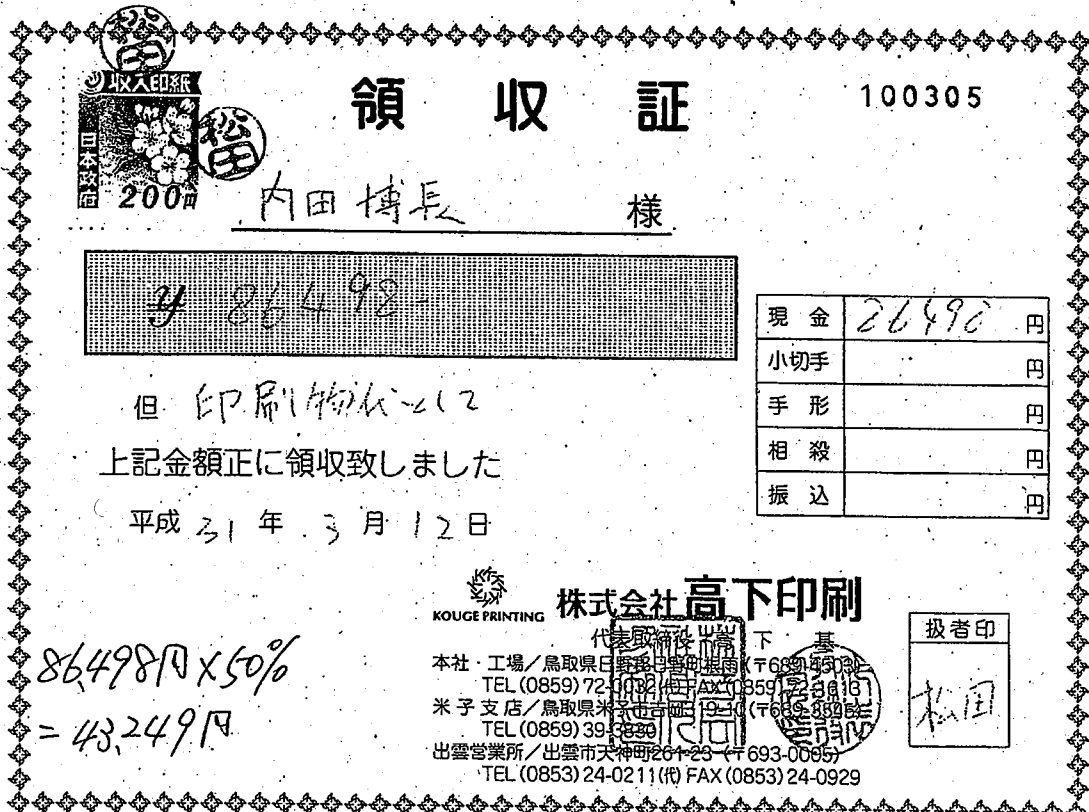 松田
収入印紙
日本政府
200円
松田
領収証
100305
内田博長 様
¥86498-
現金 86498 円
小切手 円
手形 円
相殺 円
振込 円
但 印刷物代として
上記金額正に領収致しました
平成 31 年 3 月 12 日
KOUGE PRINTING
株式会社 高下印刷
代表取締役 高下 基
本社・工場/鳥取県日野郡日野町根雨(〒689-4503)
TEL(0859)72-0032(代) FAX(0859)
米子支店/鳥取県米子市吉岡
TEL(0859)39-3880
出雲営業所/出雲市天神町261-23(〒693-0005)
TEL(0853)24-0211(代) FAX(0853)24-0929
扱者印
松田
86,498円×50%
=43,249円